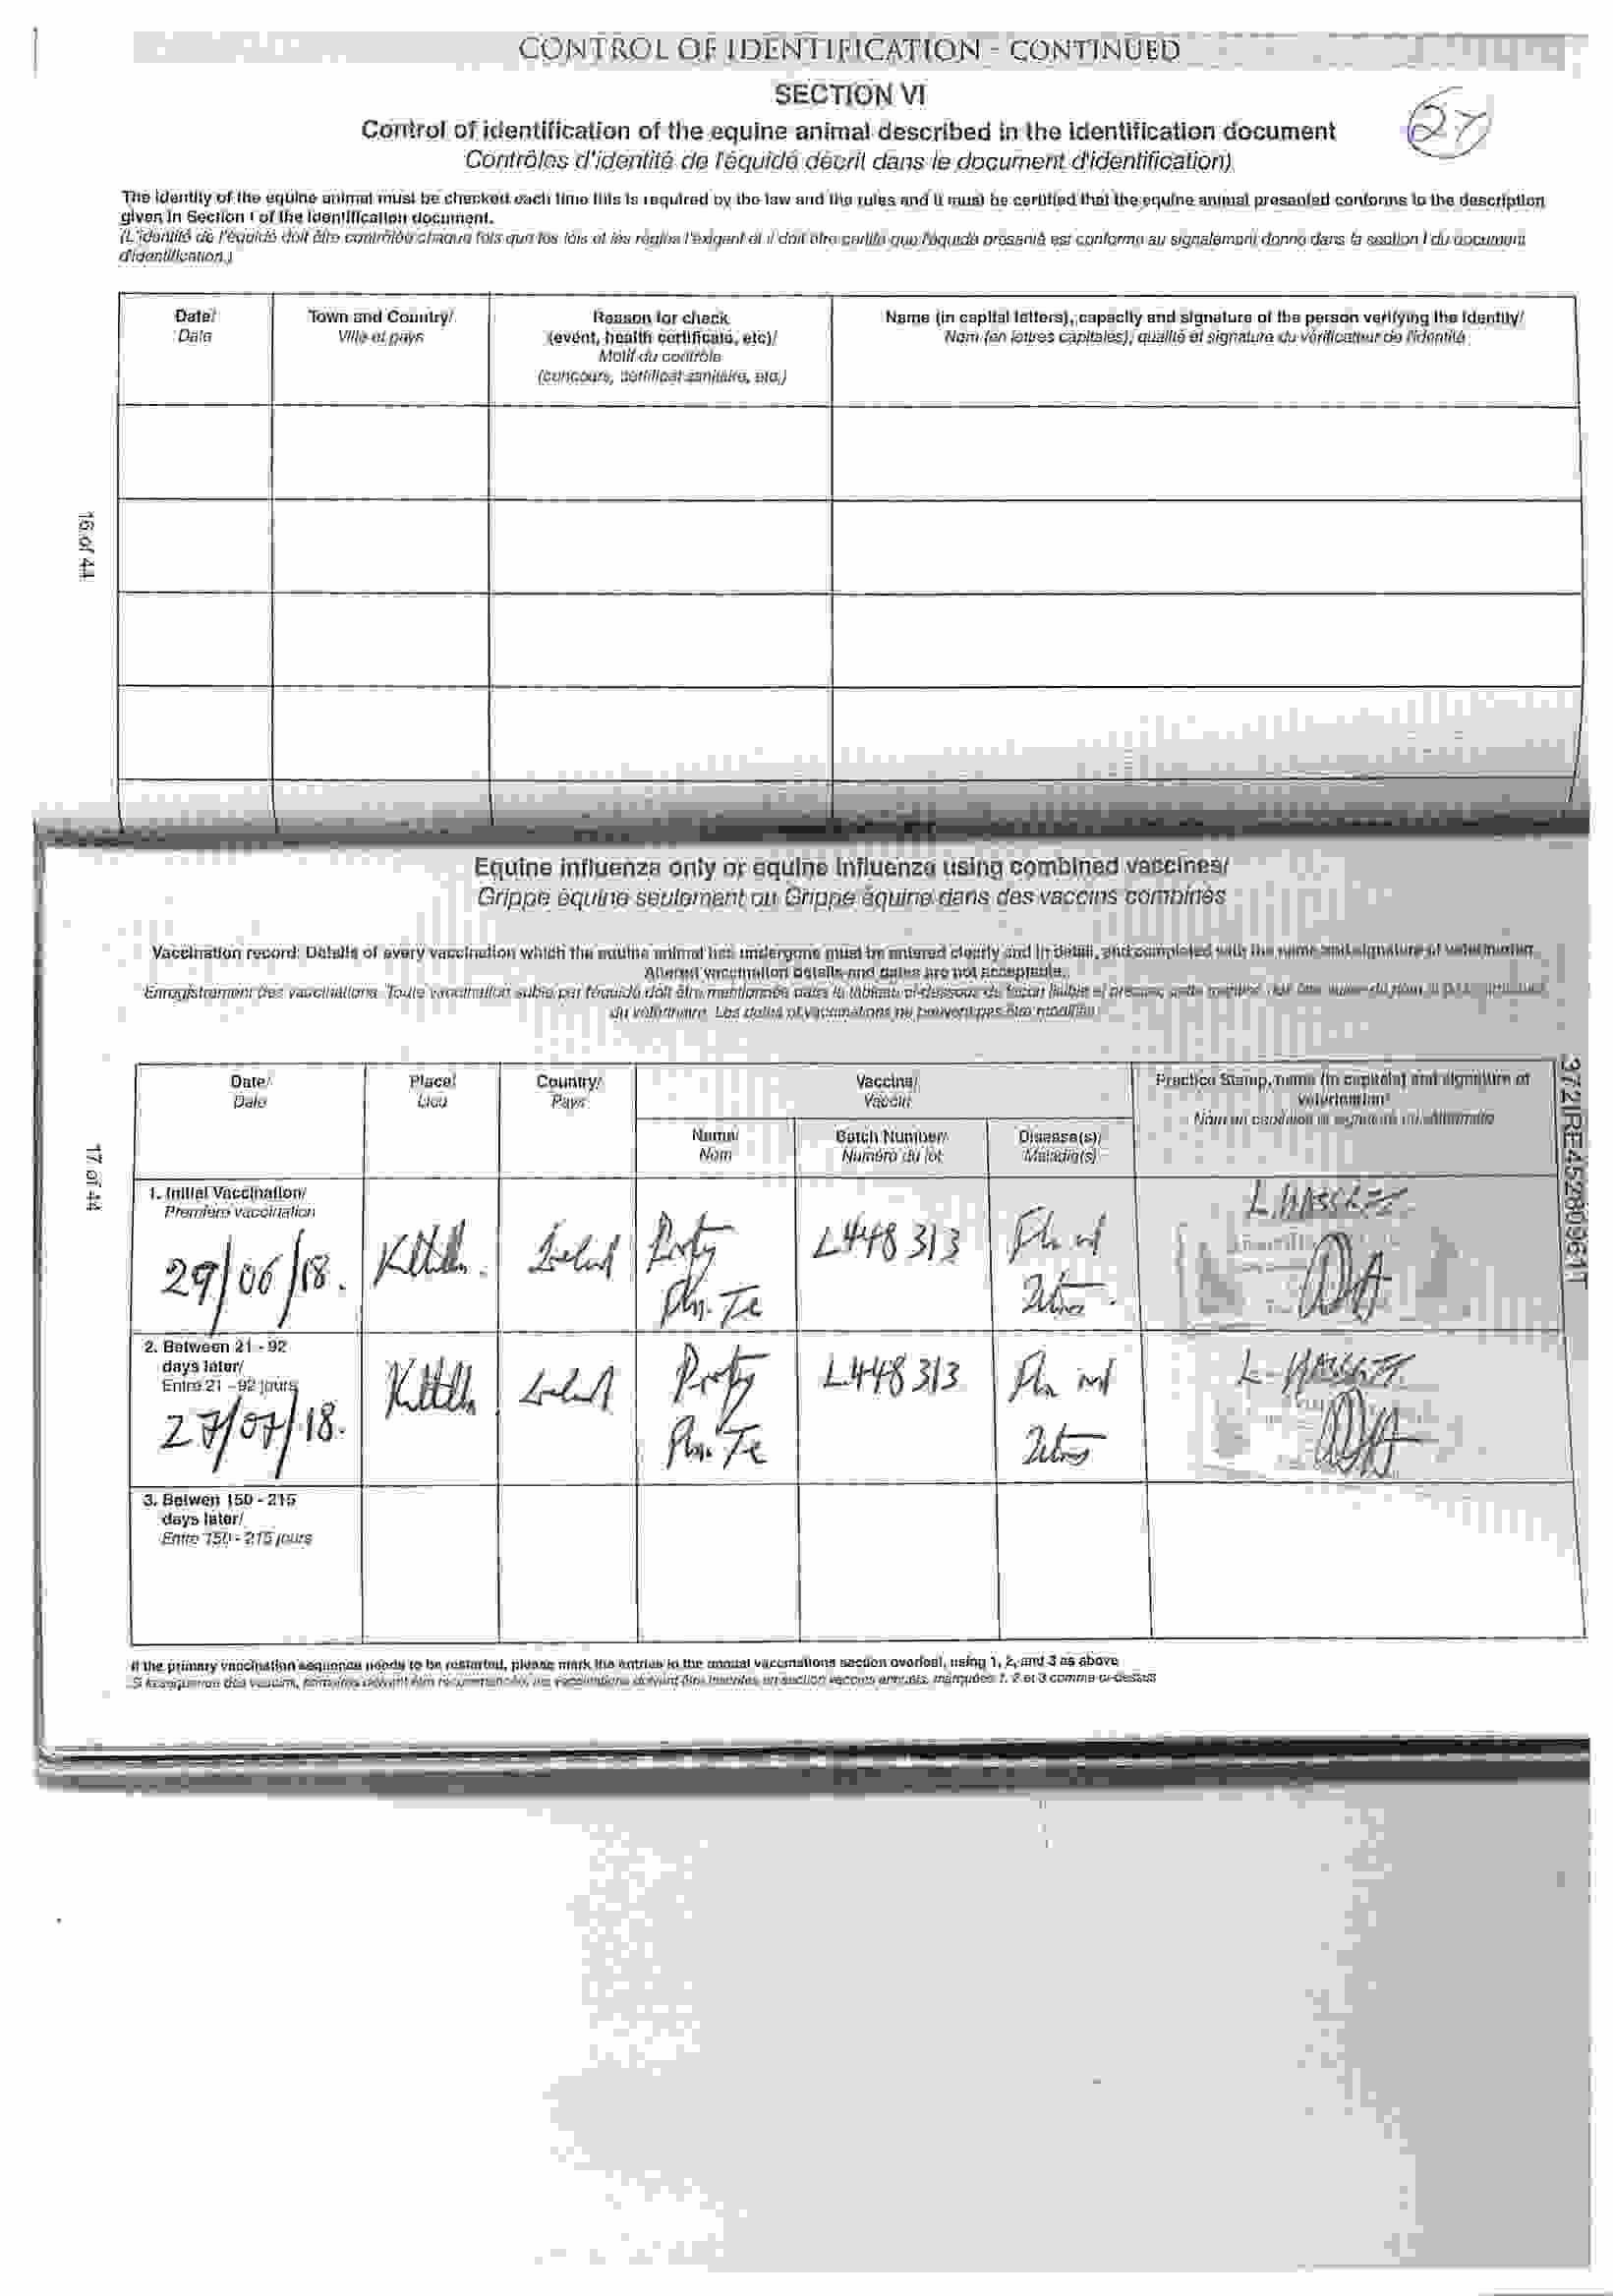 CONTROL OF IDENTIFICATION - CONTINUED
SECTION VI
27
Control of identification of the equine animal described in the identification document
Contrôles d'identité de l'équidé décrit dans le document d'identification)
The identity of the equine animal must be checked each time this is required by the law and the rules and it must be certified that the equine animal presented conforms to the description
given in Section I of the identification document.
(L'identité de l'équidé doit être contrôlée chaque fois que les lois et les règles l'exigent et il doit être certifié que l'équidé présenté est conforme au signalement donné dans la section I du document
d'identification.)
Date/
Date
Town and Country/
Ville et pays
Reason for check
(event, health certificate, etc)/
Motif du contrôle
(concours, certificat sanitaire, etc.)
Name (in capital letters), capacity and signature of the person verifying the identity/
Nom (en lettres capitales), qualité et signature du vérificateur de l'identité
16 of 44
Equine influenza only or equine influenza using combined vaccines/
Grippe équine seulement ou Grippe équine dans des vaccins combinés
Vaccination record: Details of every vaccination which the equine animal has undergone must be entered clearly and in detail, and completed with the name and signature of veterinarian.
Altered vaccination details and dates are not acceptable.
Enregistrement des vaccinations. Toute vaccination subie par l'équidé doit être mentionnée dans le tableau ci-dessous de façon lisible et précise
du vétérinaire. Les dates et vaccinations ne peuvent pas être modifiés
Date/
Date
Place/
Lieu
Country/
Pays
Vaccine/
Vaccin
Practice Stamp, name (in capitals) and signature of
veterinarian/
Name/
Nom
Batch Number/
Numéro du lot
Disease(s)/
Maladie(s)
17 of 44
372IRE45280061T
1. Initial Vaccination/
Première vaccination
29/06/18.
Ireland
L448313
2. Between 21 - 92
days later/
Entre 21 - 92 jours
27/07/18.
Ireland
L448313
3. Betwen 150 - 215
days later/
Entre 150 - 215 jours
If the primary vaccination sequence needs to be restarted, please mark the entries in the annual vaccinations section overleaf, using 1, 2, and 3 as above